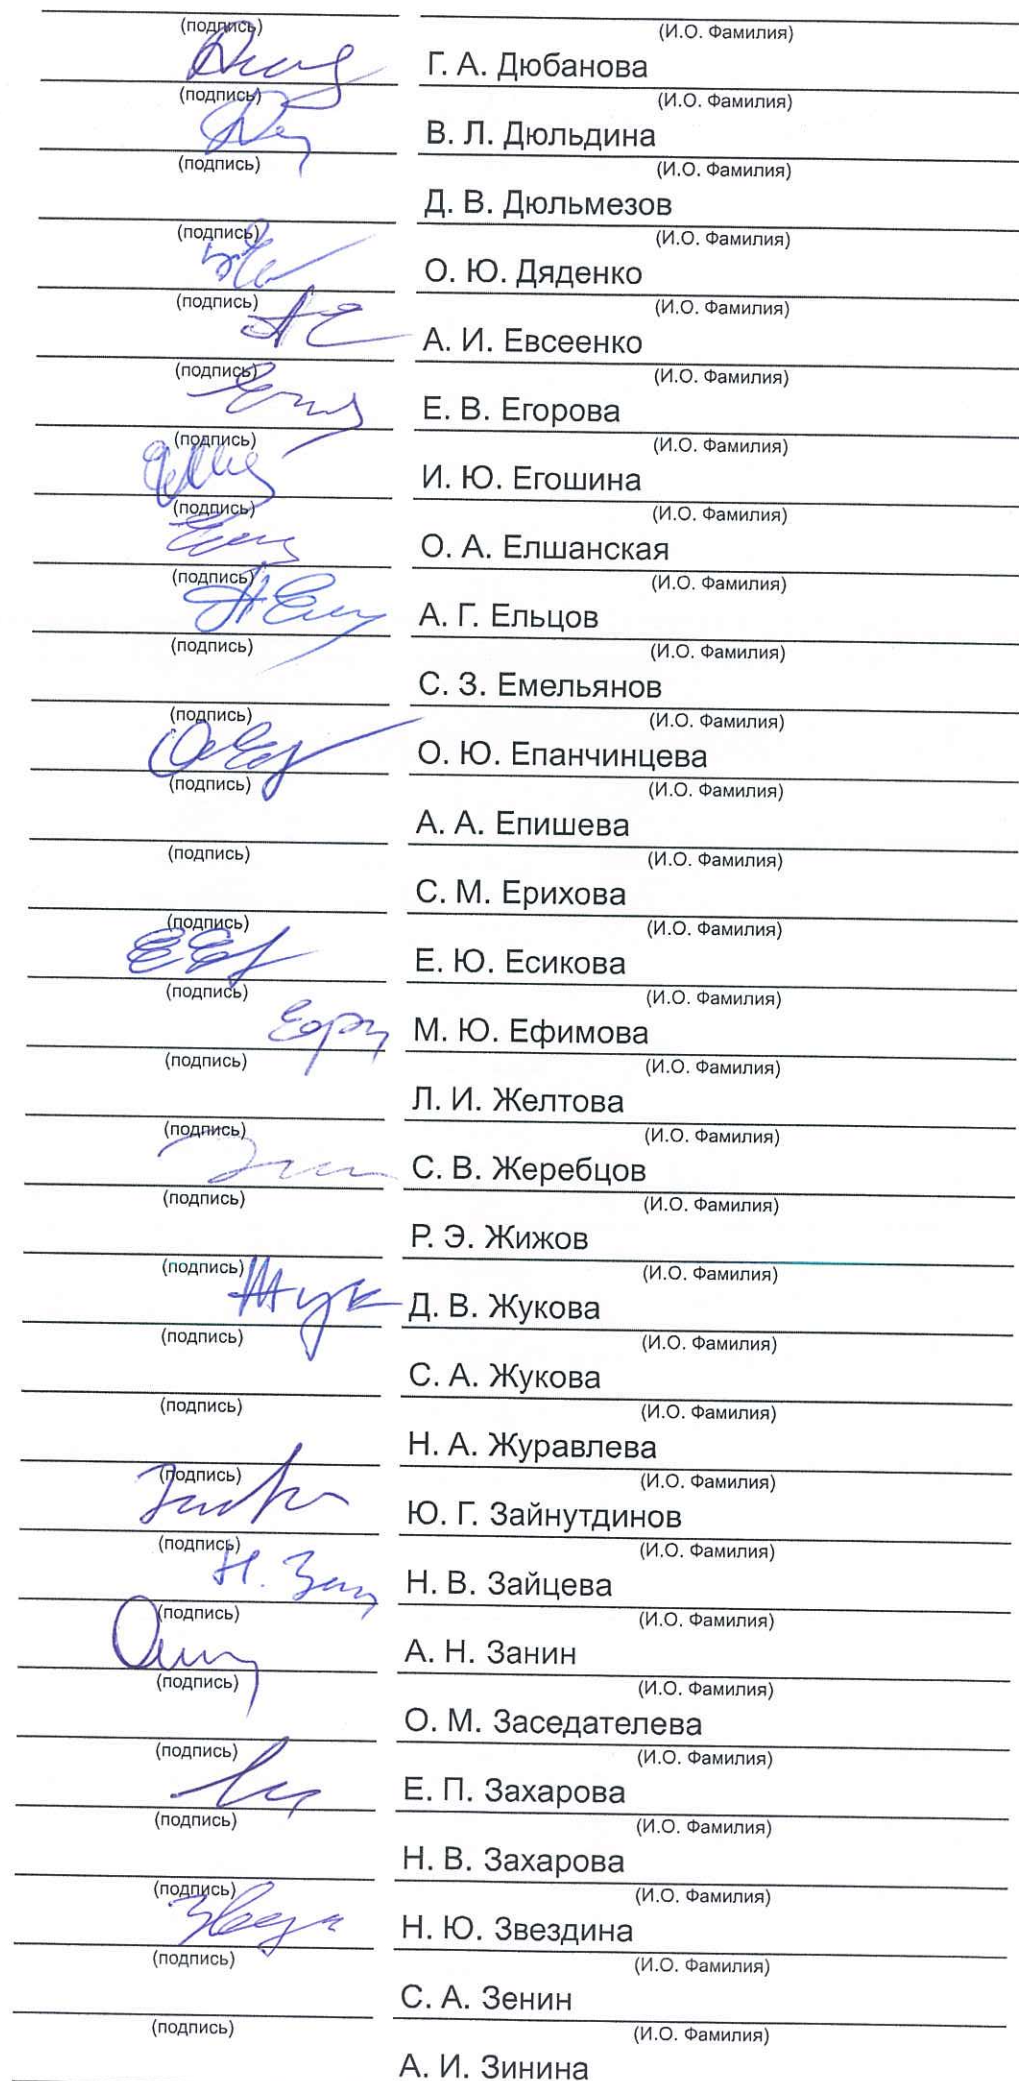 (подпись) (И.О. Фамилия)
Г. А. Дюбанова
(подпись) (И.О. Фамилия)
В. Л. Дюльдина
(подпись) (И.О. Фамилия)
Д. В. Дюльмезов
(подпись) (И.О. Фамилия)
О. Ю. Дяденко
(подпись) (И.О. Фамилия)
А. И. Евсеенко
(подпись) (И.О. Фамилия)
Е. В. Егорова
(подпись) (И.О. Фамилия)
И. Ю. Егошина
(подпись) (И.О. Фамилия)
О. А. Елшанская
(подпись) (И.О. Фамилия)
А. Г. Ельцов
(подпись) (И.О. Фамилия)
С. З. Емельянов
(подпись) (И.О. Фамилия)
О. Ю. Епанчинцева
(подпись) (И.О. Фамилия)
А. А. Епишева
(подпись) (И.О. Фамилия)
С. М. Ерихова
(подпись) (И.О. Фамилия)
Е. Ю. Есикова
(подпись) (И.О. Фамилия)
М. Ю. Ефимова
(подпись) (И.О. Фамилия)
Л. И. Желтова
(подпись) (И.О. Фамилия)
С. В. Жеребцов
(подпись) (И.О. Фамилия)
Р. Э. Жижов
(подпись) (И.О. Фамилия)
Жук Д. В. Жукова
(подпись) (И.О. Фамилия)
С. А. Жукова
(подпись) (И.О. Фамилия)
Н. А. Журавлева
(подпись) (И.О. Фамилия)
Ю. Г. Зайнутдинов
(подпись) (И.О. Фамилия)
Н. В. Зайцева
(подпись) (И.О. Фамилия)
А. Н. Занин
(подпись) (И.О. Фамилия)
О. М. Заседателева
(подпись) (И.О. Фамилия)
Е. П. Захарова
(подпись) (И.О. Фамилия)
Н. В. Захарова
(подпись) (И.О. Фамилия)
Н. Ю. Звездина
(подпись) (И.О. Фамилия)
С. А. Зенин
(подпись) (И.О. Фамилия)
А. И. Зинина